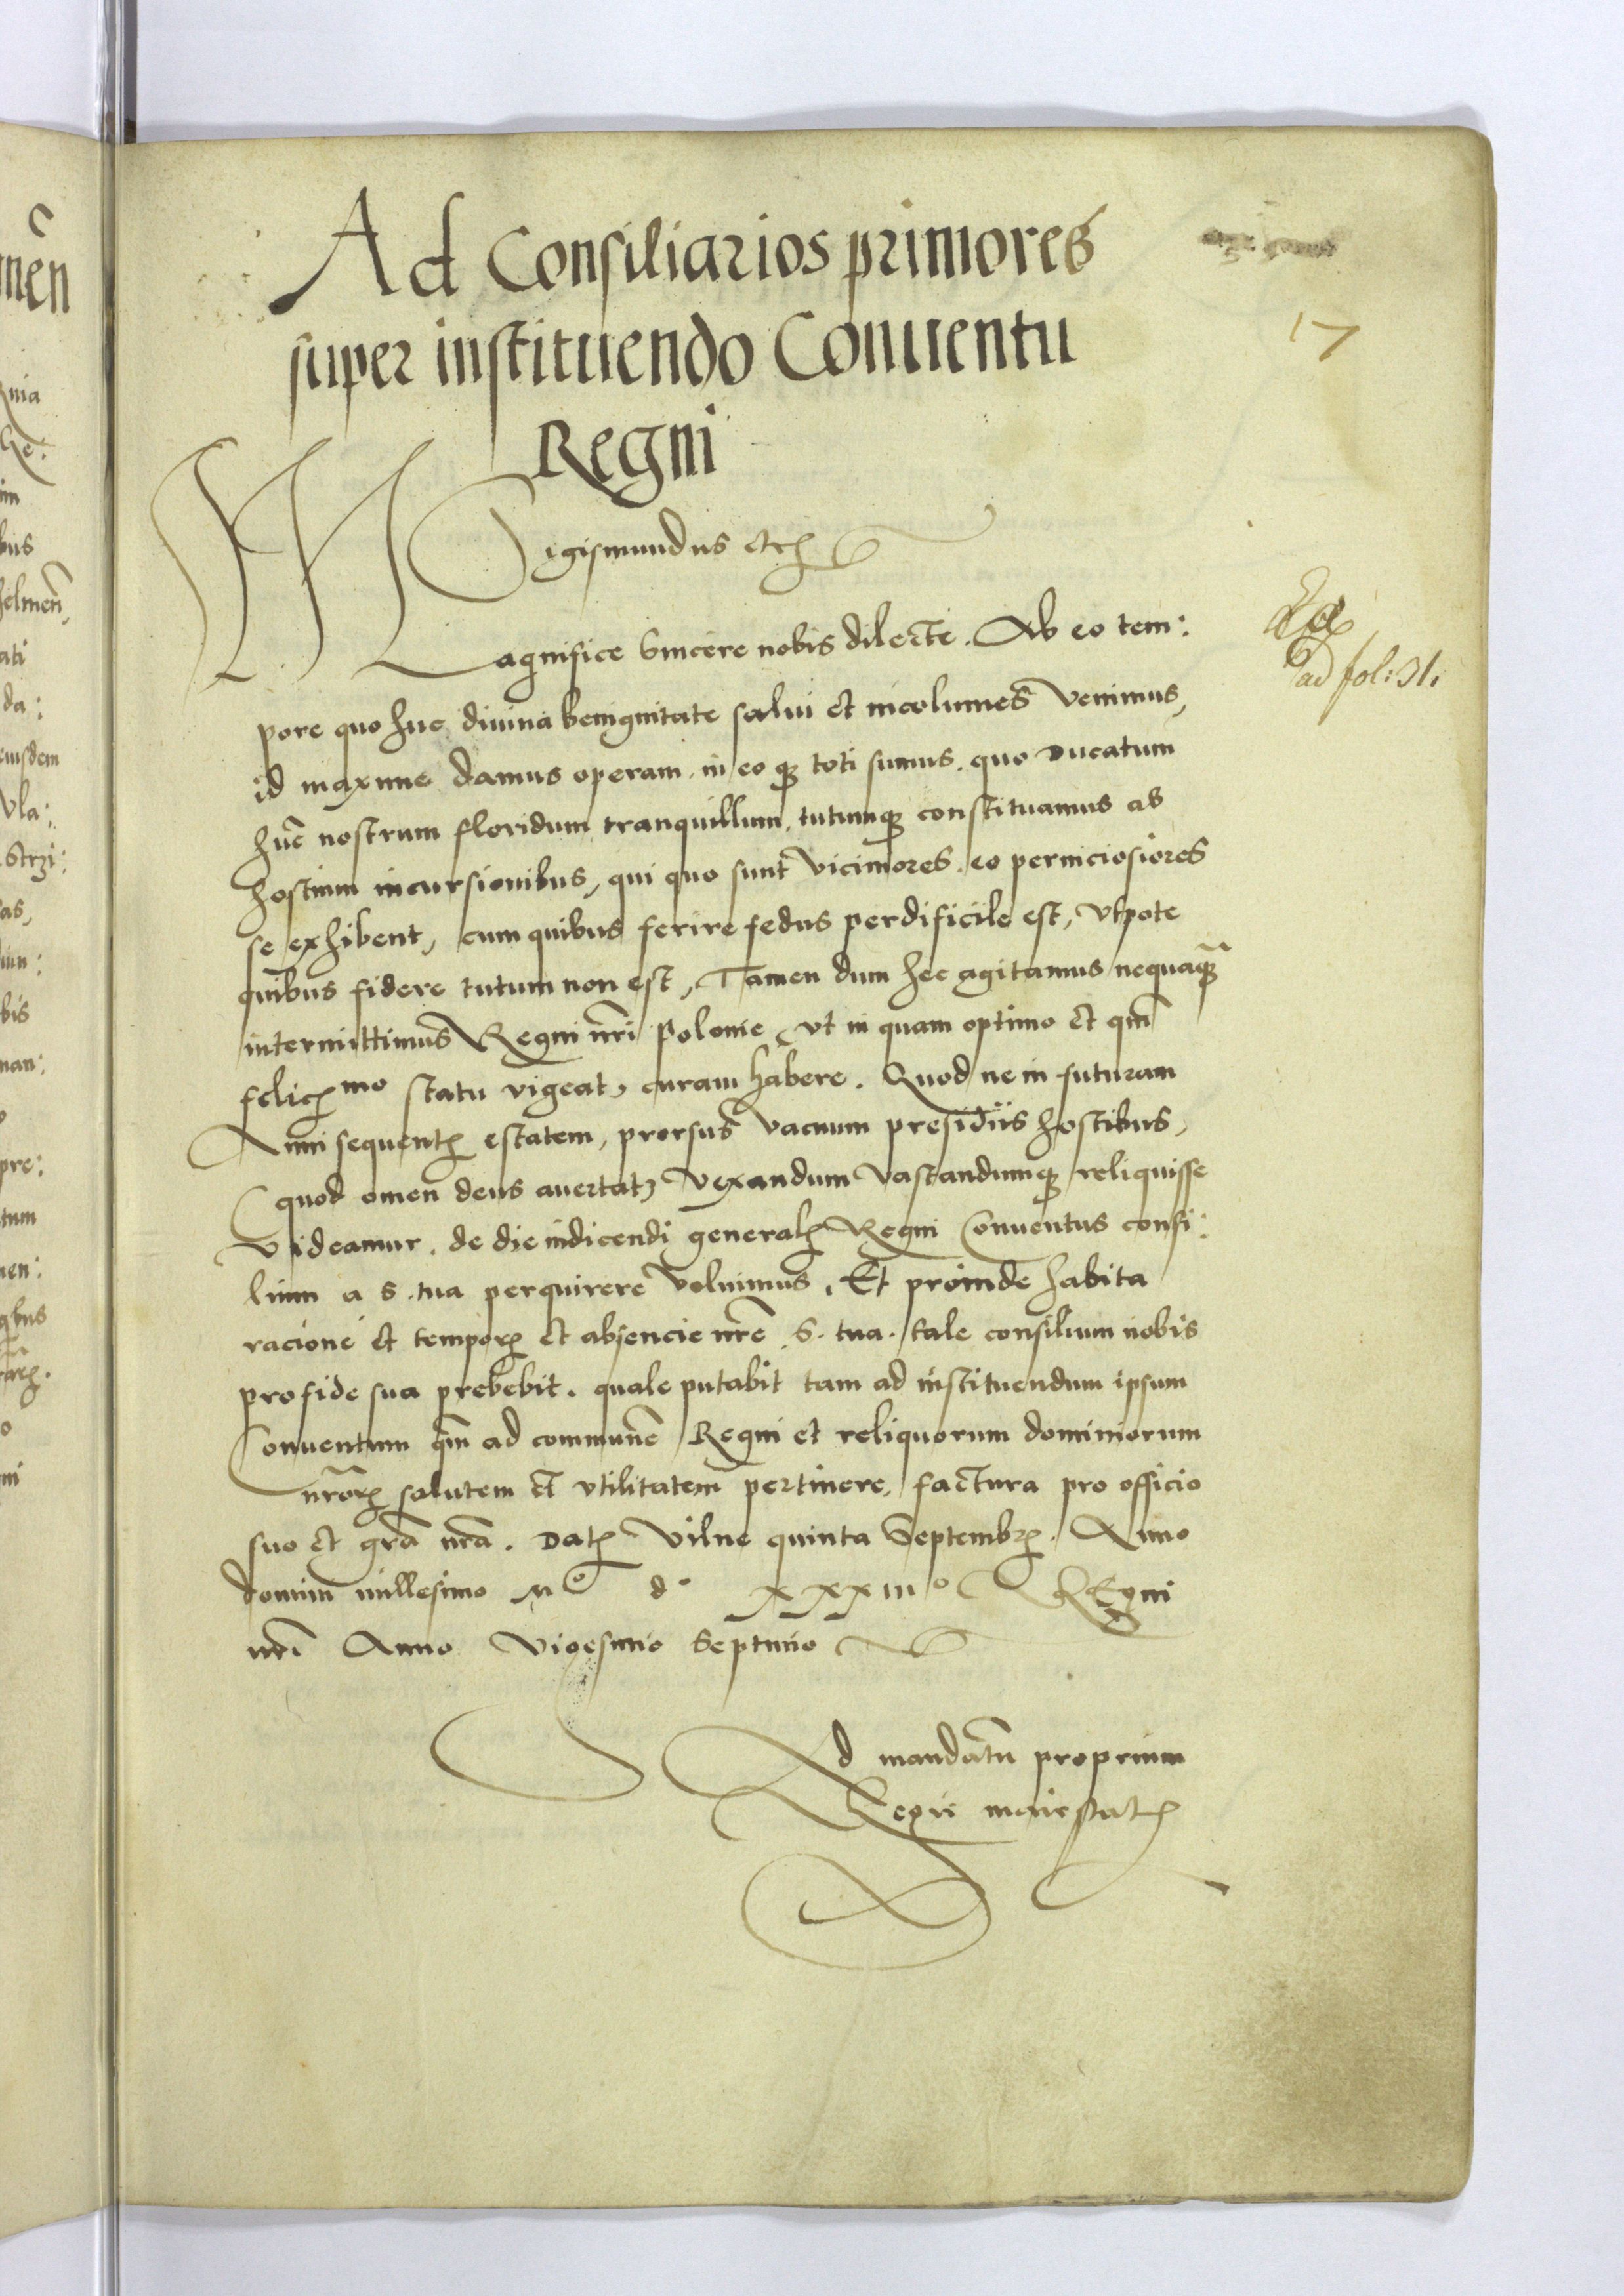 Ad Consiliarios primores
super instituendo Conuentu
Regni
17
Sigismundus etc
Magnifice Sincere nobis dilecte. Ab eo tem:
ad fol: 31.
pore quo huc diuina benignitate salui et incolumes venimus,
id maxime damus operam, in eoq; toti sumus, quo Ducatum
hūc nostrum floridum tranquillum, tutumq; constituamus ab
hostium incursionibus, qui quo sunt viciniores, eo perniciosiores
se exhibent, cum quibus ferire fedus perdificile est, vtpote
quibus fidere tutum non est, Tamen dum hec agitamus nequaq̄;
intermittimus Regni nr̄i Polonie, vt in quam optimo et qm̄
felicꝭmo statu vigeat, curam habere. Quod ne in futuram
Anni sequentꝭ estatem, prorsus vacuum presidiis hostibus,
quod omen deus auertat, vexandum vastandumq; reliquisse
videamur, de die indicendi generalꝭ Regni Conuentus consi:
lium a S. tua perquirere voluimus. Et proinde habita
racione et temporꝭ et absencie nrē, S. tua. tale consilium nobis
pro fide sua prebebit, quale putabit tam ad instituendum ipsum
Conuentum qm̄ ad commune Regni et reliquorum dominiorum
nrorꝝ salutem et vtilitatem pertinere, factura pro officio
suo et grā nrā. Datꝭ Vilne quinta Septembrꝭ. Anno
domini millesimo Mº dº xxxiiiº Regni
nrī Anno Vigesimo Septimo
Ad mandatū proprium
Regii maiestatꝭ